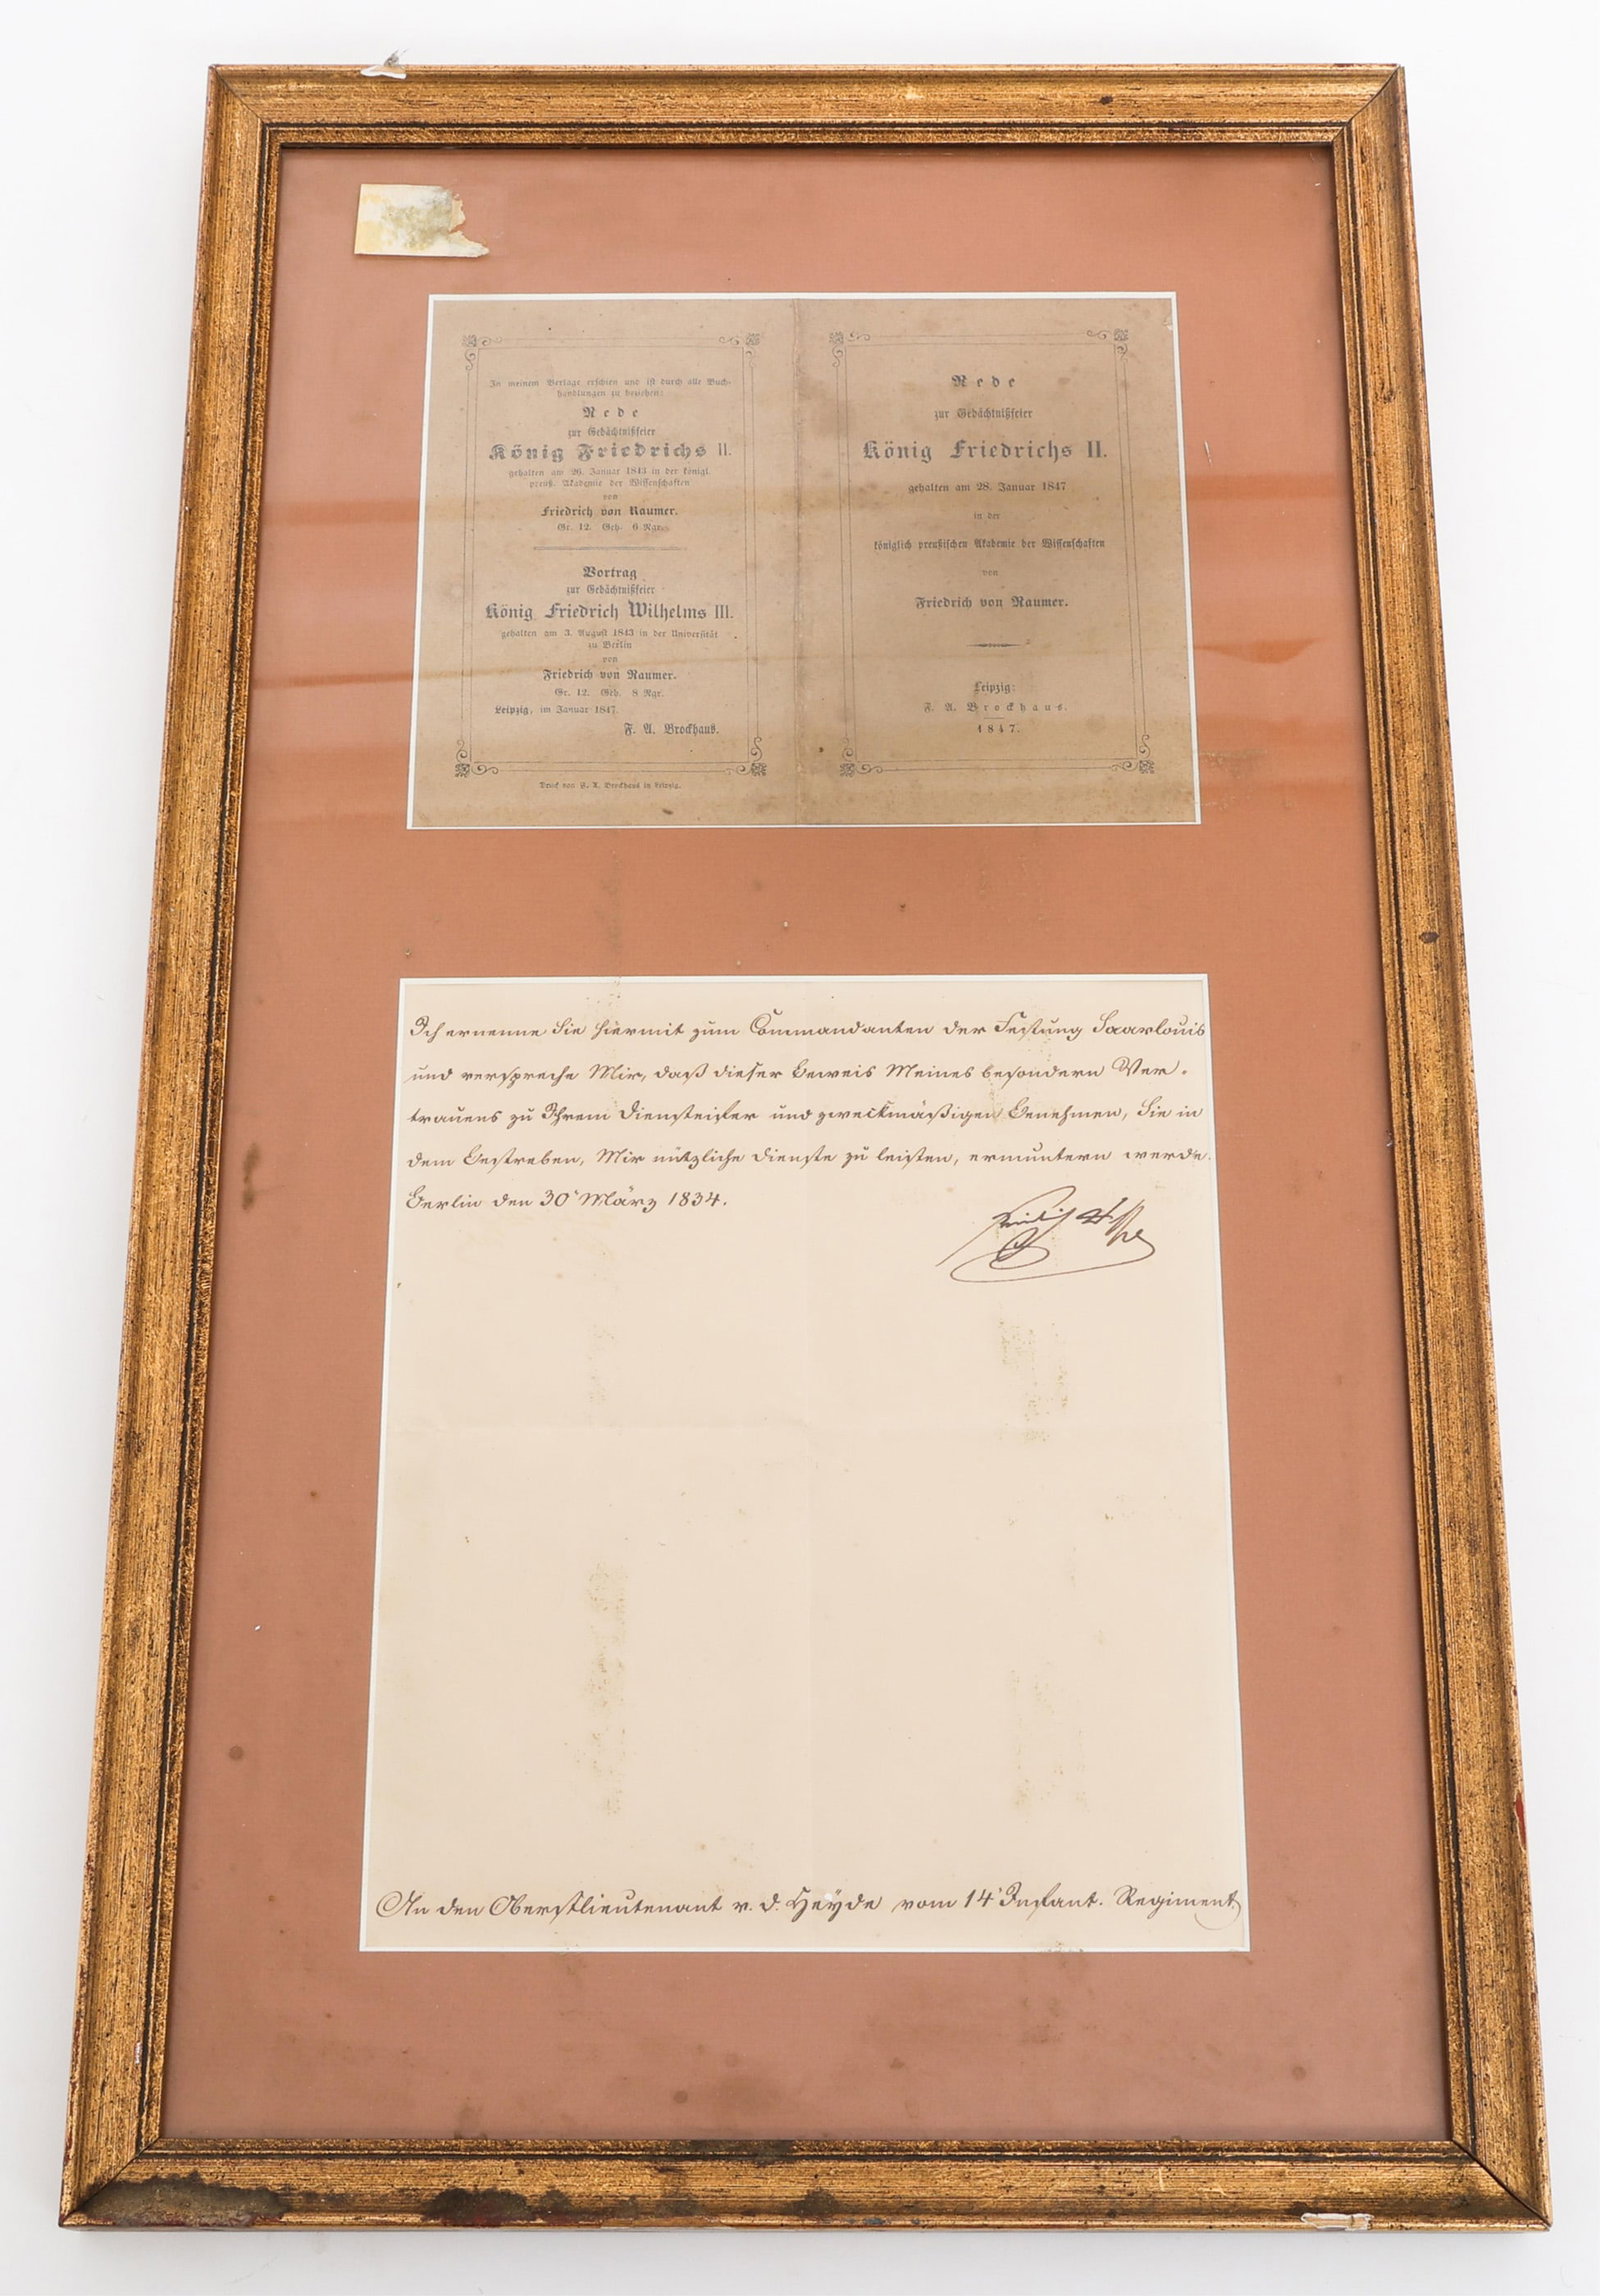 In meinem Verlage erschien und ist durch alle Buch-
handlungen zu beziehen:
Rede
zur Gedächtnißfeier
König Friedrichs II.
gehalten am 26. Januar 1843 in der königl.
preuß. Akademie der Wissenschaften
von
Friedrich von Raumer.
Gr. 12. Geh. 6 Ngr.
Vortrag
zur Gedächtnißfeier
König Friedrich Wilhelms III.
gehalten am 3. August 1843 in der Universität
zu Berlin
von
Friedrich von Raumer.
Gr. 12. Geh. 8 Ngr.
Leipzig, im Januar 1847.
F. A. Brockhaus.
Druck von F. A. Brockhaus in Leipzig.
Rede
zur Gedächtnißfeier
König Friedrichs II.
gehalten am 28. Januar 1847
in der
königlich preußischen Akademie der Wissenschaften
von
Friedrich von Raumer.
Leipzig:
F. A. Brockhaus.
1847.
Ich ernenne Sie hiermit zum Commandanten der Festung Saarlouis
und verspreche Mir, daß dieser Beweis Meines besondern Ver-
trauens zu Ihrem Diensteifer und zweckmäßigen Benehmen, Sie in
dem Bestreben, Mir nützliche Dienste zu leisten, ermuntern werde.
Berlin den 30. März 1834.
An den Oberstlieutenant v. d. Heyde vom 14. Infant. Regiment.